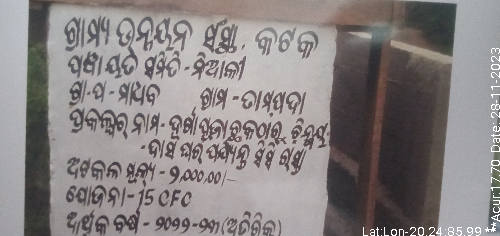 ଗ୍ରାମ୍ୟ ଉନ୍ନୟନ ସଂସ୍ଥା, କଟକ
ପଞ୍ଚାୟତ ସମିତି - ନିଆଳୀ
ଗ୍ରା-ପ - ମାଧବ ଗ୍ରାମ - ତାମ୍ରପଦା
ପ୍ରକଳ୍ପର ନାମ - ଦୁର୍ଗାପୂଜା ଛକଠାରୁ ଚିନ୍ମୟ
- ଦାସ ଘର ପର୍ଯ୍ୟନ୍ତ ସିସି ରାସ୍ତା
ଅଟକଳ ମୂଲ୍ୟ - ୨,୦୦୦.୦୦/-
ଯୋଜନା - 15 CFC
ଆର୍ଥିକ ବର୍ଷ - ୨୦୨୨-୨୩ (ଅତିରିକ୍ତ)
Lat:Lon-20.24:85.99
**Acur17.70 Date: 28-11-2023